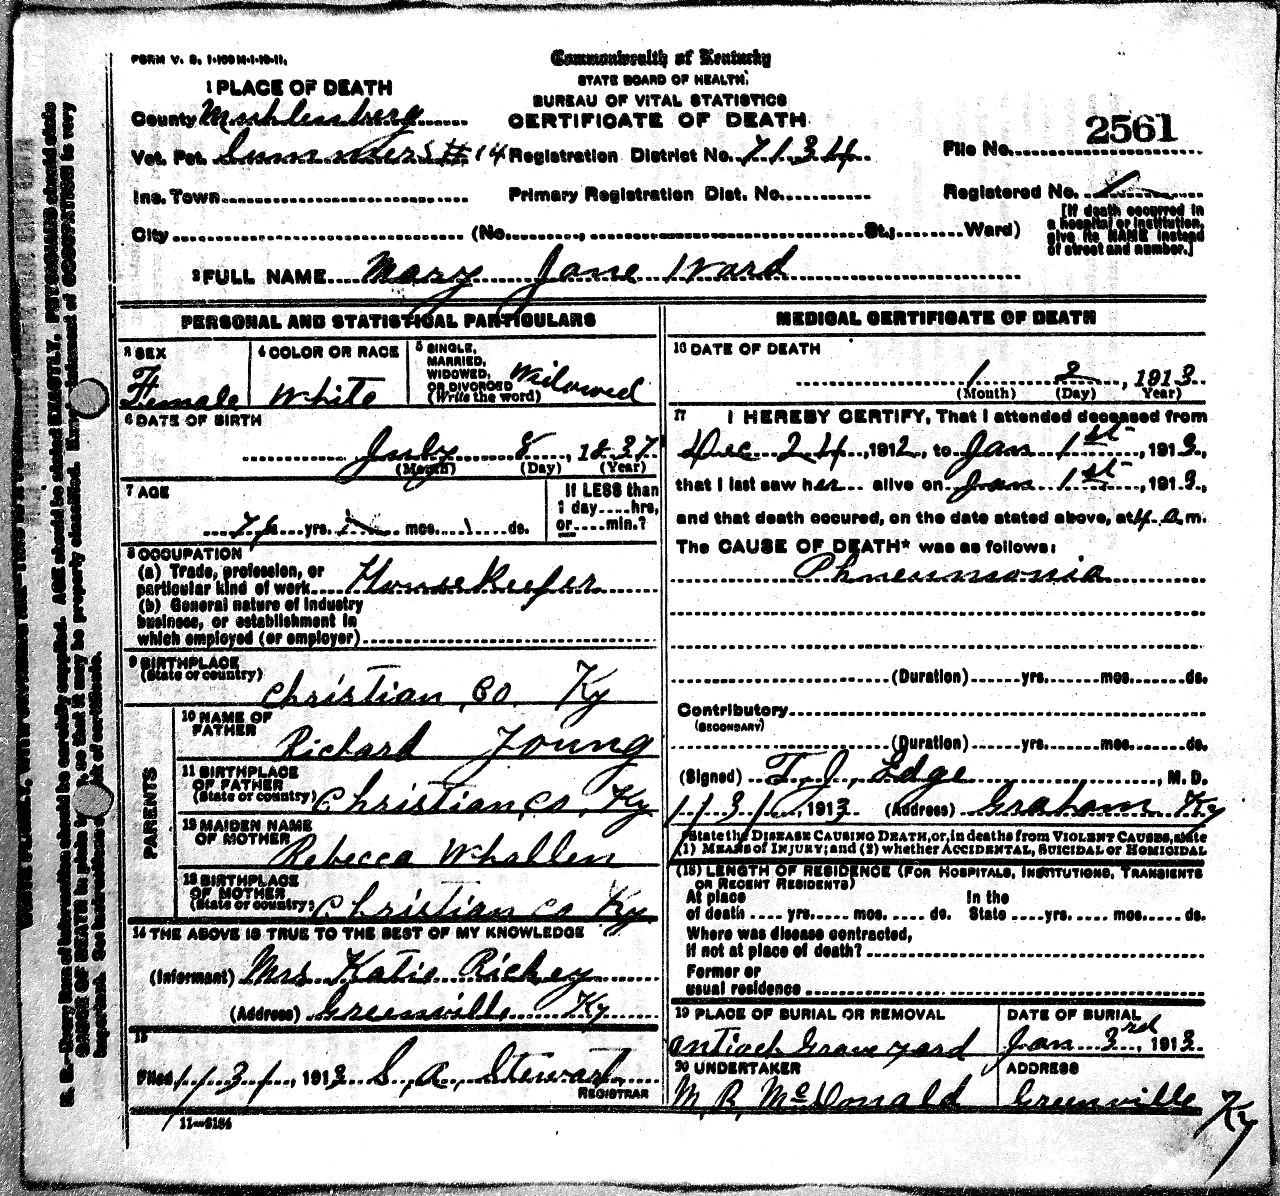 FORM V. S. 1-150 M-1-10-11.
Commonwealth of Kentucky
STATE BOARD OF HEALTH.
BUREAU OF VITAL STATISTICS
CERTIFICATE OF DEATH
1 PLACE OF DEATH
County Muhlenberg
Vot. Pct. Summers # 14 Registration District No. 7134
File No. 2561
Ins. Town Primary Registration Dist. No.
Registered No. 1
City (No. , St.; Ward)
[If death occurred in
a hospital or institution,
give its NAME instead
of street and number.]
2 FULL NAME Mary Jane Ward
PERSONAL AND STATISTICAL PARTICULARS
3 SEX
Female
4 COLOR OR RACE
White
5 SINGLE,
MARRIED,
WIDOWED,
OR DIVORCED
(Write the word)
Widowed
6 DATE OF BIRTH
July 8, 1837
(Month) (Day) (Year)
7 AGE
yrs. mos. 1 ds.
If LESS than
1 day....hrs,
or....min.?
8 OCCUPATION
(a) Trade, profession, or
particular kind of work HouseKeeper
(b) General nature of industry
business, or establishment in
which employed (or employer)
9 BIRTHPLACE
(State or country)
Christian, Co. Ky
PARENTS
10 NAME OF
FATHER
Richard Young
11 BIRTHPLACE
OF FATHER
(State or country)
Christian, Co, Ky
12 MAIDEN NAME
OF MOTHER
Rebecca Whallen
13 BIRTHPLACE
OF MOTHER
(State or country)
Christian Co Ky
14 THE ABOVE IS TRUE TO THE BEST OF MY KNOWLEDGE
(Informant) Mrs Katie Richey
(Address) Greenville Ky
15
Filed 1/31, 1913 S, A, Stewart
REGISTRAR
11—3184
MEDICAL CERTIFICATE OF DEATH
16 DATE OF DEATH
1 2, 1913
(Month) (Day) Year)
17 I HEREBY CERTIFY, That I attended deceased from
Dec 24, 1912, to Jan 1st, 1913,
that I last saw her alive on Jan 1st, 1913,
and that death occured, on the date stated above, at 4 a m.
The CAUSE OF DEATH* was as follows:
Phneumonia
(Duration) yrs. mos. ds.
Contributory
(SECONDARY)
(Duration) yrs. mos. ds.
(Signed) T. J. Edge, M. D.
1/31, 1913 (Address) Graham Ky
*State the DISEASE CAUSING DEATH, or, in deaths from VIOLENT CAUSES, state
(1) MEANS of INJURY; and (2) whether ACCIDENTAL, SUICIDAL or HOMICIDAL
(18) LENGTH OF RESIDENCE (FOR HOSPITALS, INSTITUTIONS, TRANSIENTS
OR RECENT RESIDENTS)
At place In the
of death .... yrs. .... mos. .... ds. State .... yrs. .... mos. .... ds.
Where was disease contracted,
if not at place of death?
Former or
usual residence
19 PLACE OF BURIAL OR REMOVAL
Antioch Graveyard
DATE OF BURIAL
Jan 3rd, 1913
20 UNDERTAKER
M, R, McDonald
ADDRESS
Greenville Ky
N. B.—Every item of information should be carefully supplied. AGE should be stated EXACTLY. PHYSICIANS should state
CAUSE OF DEATH in plain so that it may be properly classified. statement of OCCUPATION is very
important. See instructions of certificate.